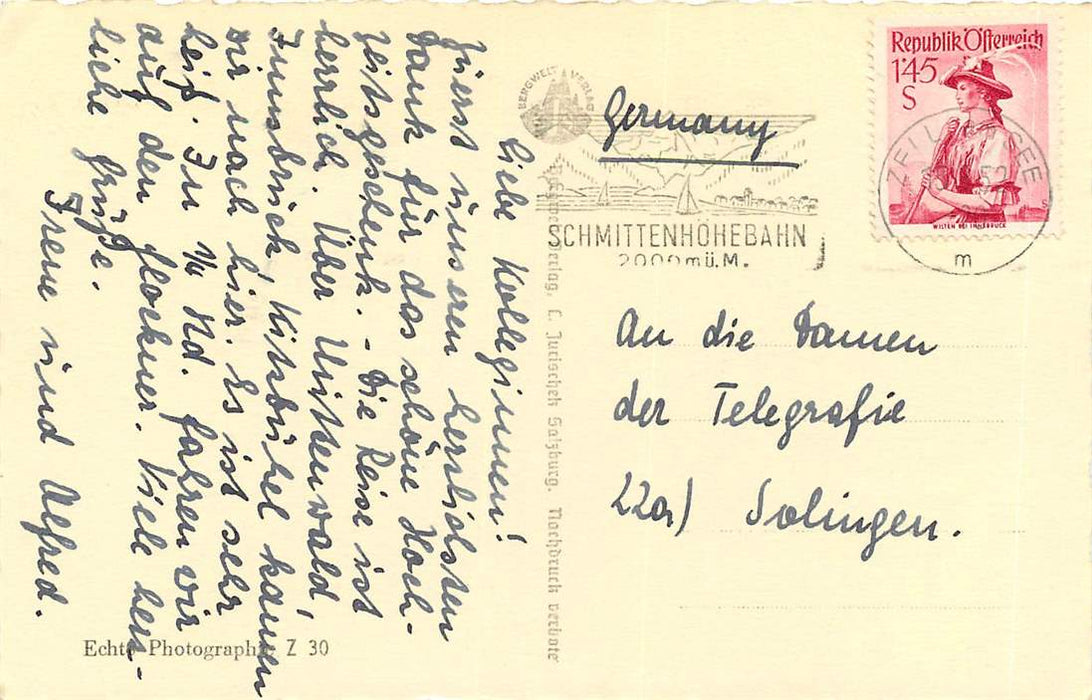 Liebe Kolleginnen!
Zuerst unseren herzlichsten
Dank für das schöne Hoch-
zeitsgeschenk. - Die Reise ist
herrlich. Über Mittenwald,
Innsbruck, Kitzbühel kamen
wir nach hier. Es ist sehr
heiß. In ¼ Std. fahren wir
auf den Glockner. Viele herz-
liche Grüße.
Irene und Alfred.
Echte Photographie Z 30
BERGWELT VERLAG
Verlag, C. Jurischek Salzburg. Nachdruck verboten
Germany
SCHMITTENHÖHEBAHN
2000 m ü. M.
Republik Österreich
1'45
S
WILTEN BEI INNSBRUCK
ZELL SEE
52
m
An die Damen
der Telegrafie
22a) Solingen.